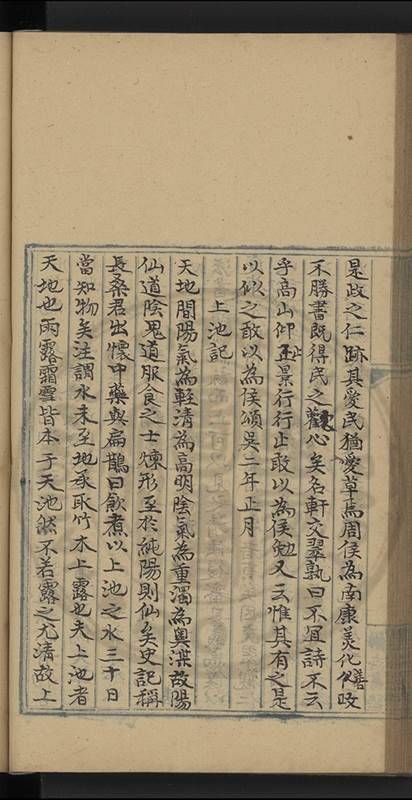 是政之仁跡其愛民猶愛草焉周侯為南康美化善政
不勝書既得民之歡心矣名軒交翠孰曰不宜詩不云
乎高山仰止景行行止敢以為侯勉又云惟其有之是
以似之敢以為侯頌吳二年正月
上池記
天地間陽氣為輕清為高明陰氣為重濁為輿渫故陽
仙道陰鬼道服食之士煉形至於純陽則仙矣史記稱
長桑君出懷中藥與扁鵲曰飲煮以上池之水三十日
當知物矣注謂水未至地承取竹木上露也夫上池者
天地也雨露霜雪皆本于天池然不若露之尤清故上